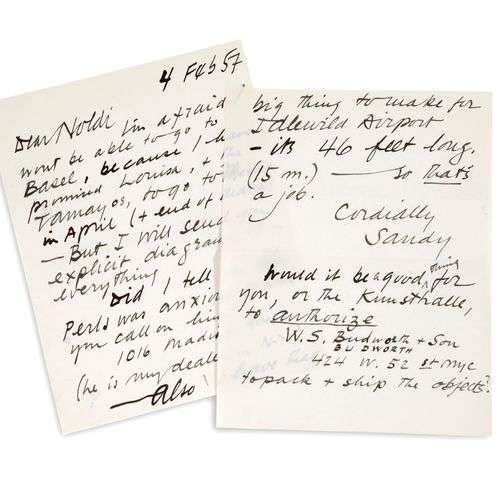 4 Feb 57
Dear Noldi
I'm afraid
wont be able to go to
Basel, because I h
promised Louisa, +
Tamayos, to go to
in April (+ end of
— But I will send
explicit diagra
everything
Did I tell
Perls was anxio
you call on him
1016 Madi
(he is my deale
— also
big thing to make for
Idlewild Airport
— its 46 feet long.
(15 m.) — so that's
a job.
Cordially
Sandy
Would it be a good thing for
you, or the Kunsthalle,
to authorize
W.S. Budworth + Son
BUDWORTH
424 W. 52 st nyc
to pack + ship the objects?